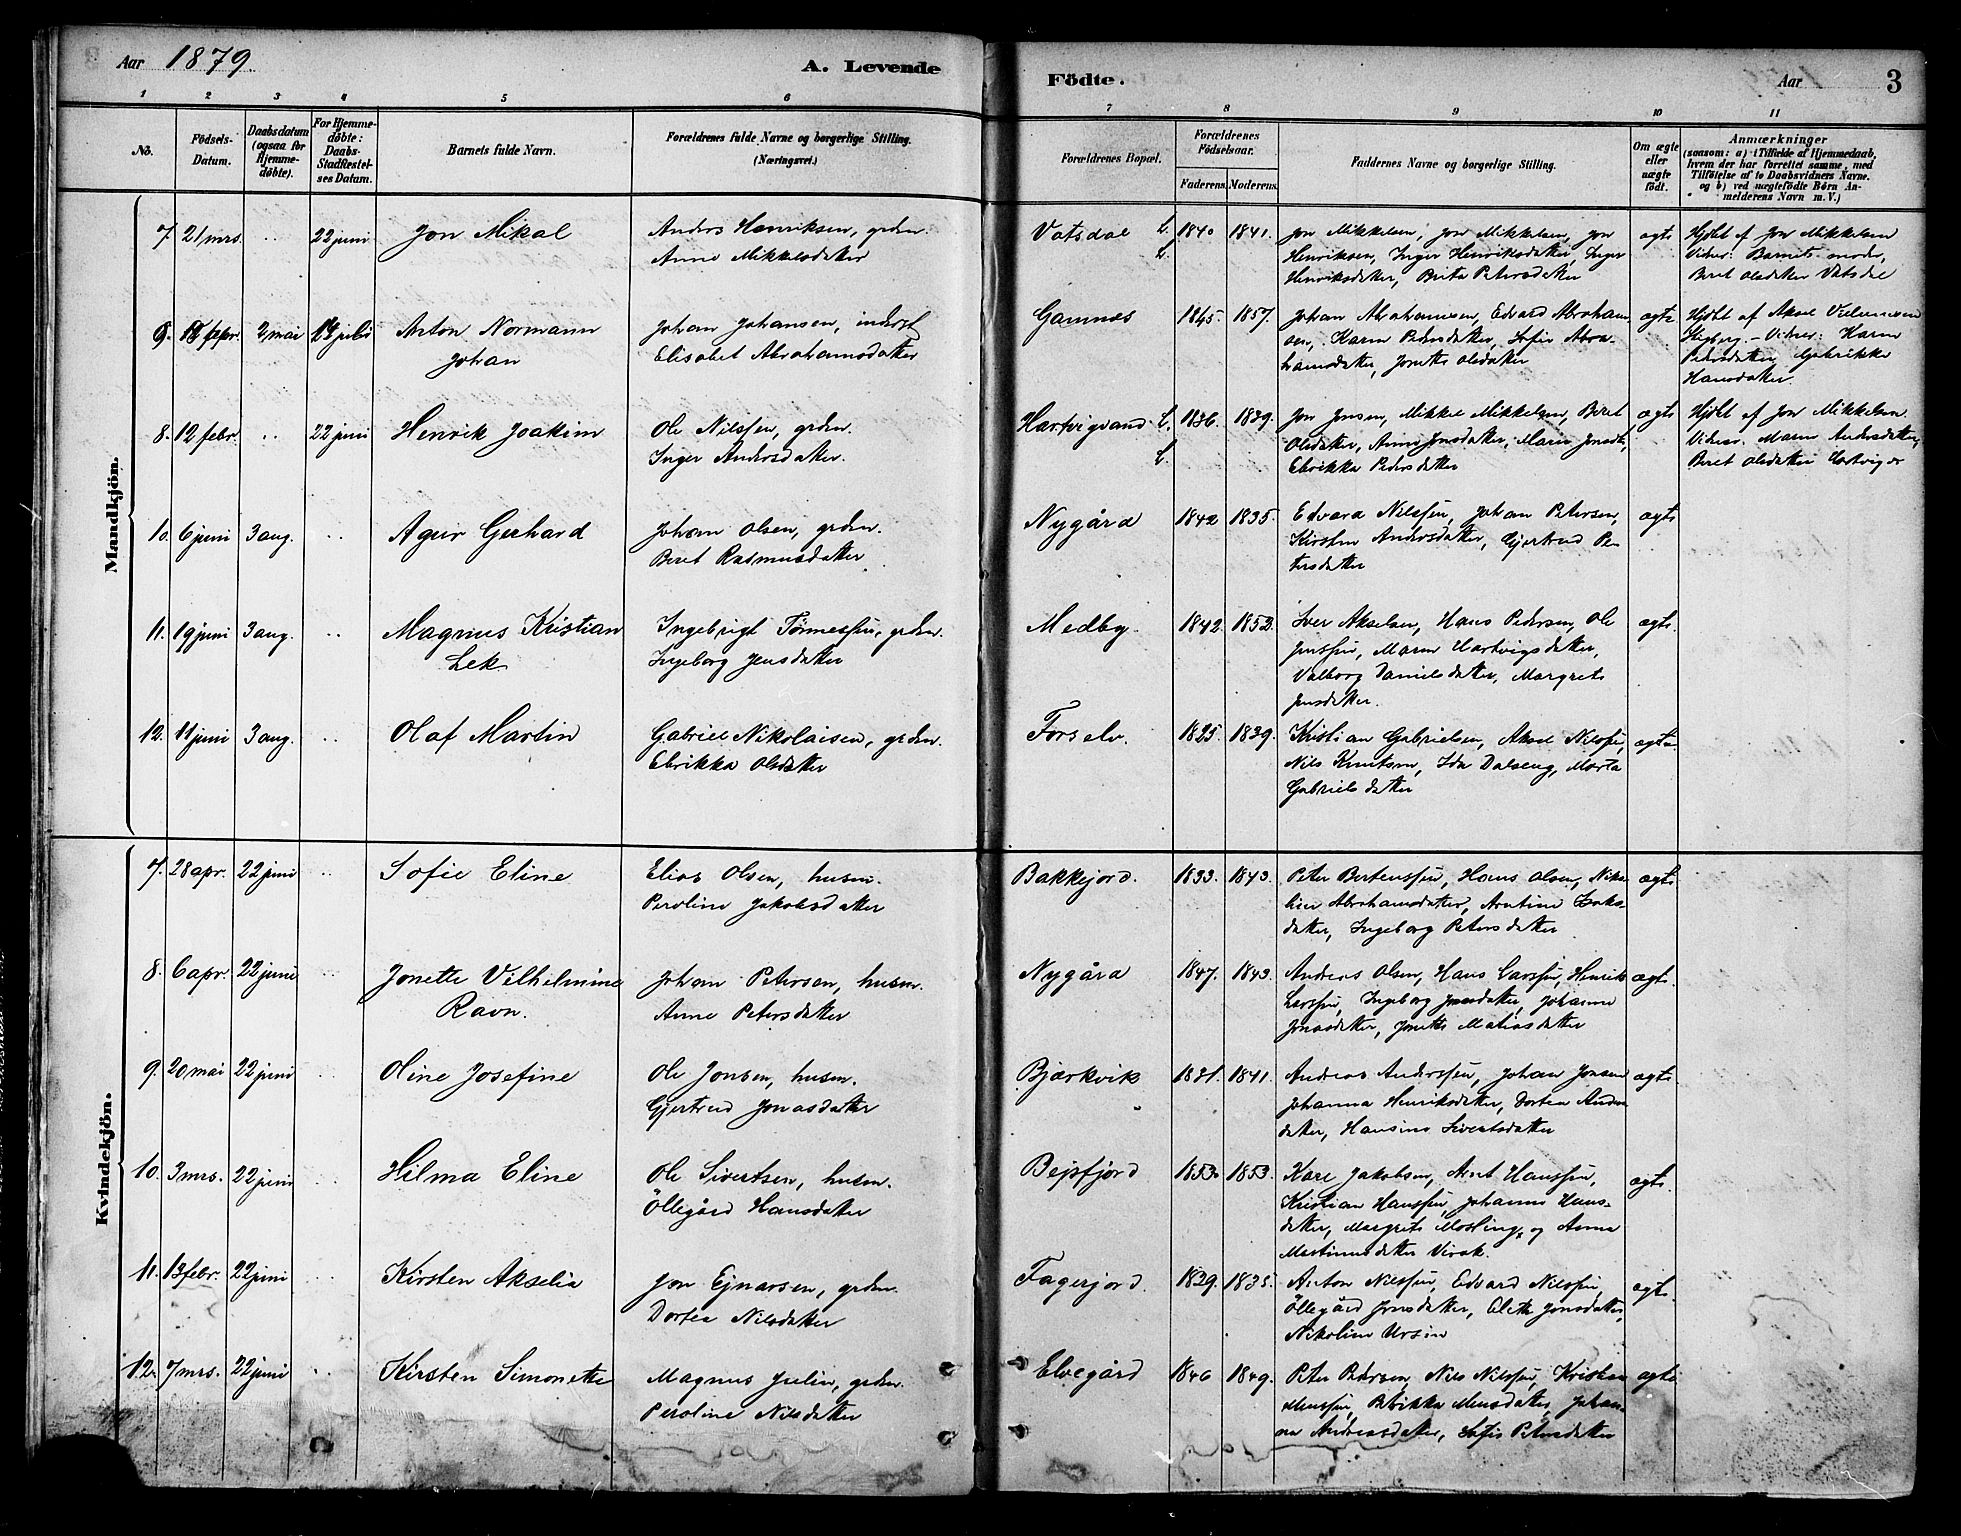 Aar 1879.
A. Levende
Födte.
Aar
3
1 2 3 4 5 6 7 8 9 10 11
No.
Födsels-
Datum.
Daabsdatum
(ogsaa for
Hjemme-
döbte).
For Hjemme-
döbte:
Daabs-
Stadfæstel-
ses Datum.
Barnets fulde Navn.
Forældrenes fulde Navne og borgerlige Stilling.
(Næringsvei.)
Forældrenes Bopæl.
Forældrenes
Födselsaar.
Faderens. Moderens.
Faddernes Navne og borgerlige Stilling.
Om ægte
eller
uægte
födt.
Anmærkninger
(saasom: a) i Tilfælde af Hjemmedaab,
hvem der har forrettet samme, med
Tilföielse af to Daabsvidners Navne,
og b) ved uægtefödte Börn An-
melderens Navn m. V.)
Mandkjön.
7. 21 mrs. .. 22 juni Jon Mikal
Anders Henriksen, grdm.
Anne Mikkelsdatter
Vatsdal L. L. 1840 1841.
Jon Mikkelsen, Jon Mikkelsen, Jon
Henriksen, Inger Henriksdatter, Inger
Henriksdatter, Berta Petersdatter
ægte
Hjdbt af Jon Mikkelsen
Vidner: Barnets moder,
Beret Olsdatter Vatsdal
9. febr. 2 mai juli Anton Normann
Johan
Johan Johansen, inderst
Elisabet Abrahamsdatter
Gamnes 1845. 1857.
Johan Abrahamsen, Edvard Abraham-
sen, Karen Pedersdatter, Sofie Abra-
hamsdatter, Jonette Olsdatter
ægte
Hjdbt af Aksel
Vidner: Karen
Pedersdatter,
Hansdatter.
8. 12 febr. .. 22 juni Henrik Joakim
Ole Nilssen, grdm.
Inger Andersdatter.
Hartvigvand L. L. 1836. 1839.
Jon Jonsen, Mikkel Mikkelsen, Beret
Olsdatter, Anne Jonsdatter, Maren Jonsdt,
Elrikka Pedersdatter
ægte
Hjdbt af Jon Mikkelsen.
Vidner. Maren Andersdatter,
Beret Olsdatter
10. 6 juni 3 aug. .. Agur Gerhard
Johan Olsen, grdm.
Beret Rasmusdatter
Nygård 1842 1835.
Edvard Nilssen, Johan Petersen,
Kirsten Andersdatter, Gjertrud Pe-
tersdatter
ægte
11. 19 juni 3 aug. .. Magnus Kristian
Lek
Ingebrigt Tørmessen, grdm.
Ingeborg Jensdatter
Medby. 1842. 1852.
Iver Akselsen, Hans Pedersen, Ole
Jenssen, Maren Hartvigsdatter,
Valborg Danielsdatter, Margrete
Jensdatter.
ægte.
12. 11 juni 3 aug. .. Olaf Martin
Gabriel Nikolaisen, grdm.
Elrikka Olsdatter
Forselv. 1825. 1839.
Kristian Gabrielsen, Aksel Nilssen,
Nils Knutsen, Ida Dalseng, Marta
Gabrielsdatter
ægte
Kvindekjön.
7. 28 apr. 22 juni .. Sofie Eline
Elias Olsen, husm.
Peroline Jakobsdatter
Bakkejord. 1833. 1843.
Peter Bertenssen, Hans Olsen, Niko-
line Abrahamsdatter, Arntine Isaks-
datter, Ingeborg Petersdatter
ægte
8. 6 apr. 22 juni .. Jonette Vilhelmine
Ravn.
Johan Petersen, husm.
Anne Petersdatter
Nygård 1847. 1843.
Andreas Olsen, Hans Larssen, Henrik
Larssen, Ingeborg Jonsdatter, Johanna
Jonasdatter, Jonette Matiasdatter
ægte.
9. 20 mai 22 juni .. Oline Josefine
Ole Jonsen, husm.
Gjertrud Jonasdatter
Bjærkvik 1831. 1841.
Andreas Anderssen, Johan Jonsen
Johanna Henriksdatter, Dortea Anders-
datter, Hansine Sivertsdatter
ægte
10. 3 mrs. 22 juni .. Hilma Eline
Ole Sivertsen, husm.
Öllegård Hansdatter
Bejsfjord 1853. 1853.
Karl Jakobsen, Arnt Hanssen,
Kristian Hanssen, Johanna Hans-
datter, Margrete Mosling, og Anna
Martinusdatter Virak.
ægte.
11. 13 febr. 22 juni .. Kirsten Akselia
Jon Ejnarsen, grdm.
Dortea Nilsdatter
Fagerjord. 1829. 1835.
Anton Nilssen, Edvard Nilssen,
Öllegård Jonsdatter, Elethe Jonsdatter,
Nikoline Ursin
ægte.
12. 7 mrs. 22 juni .. Kirsten Simonette
Magnus Julin, grdm.
Peroline Nilsdatter
Elvegård 1846 1849.
Peter Pedersen, Nils Nilssen, Kristian
Menssen, Rebikka Mensdatter, Johan-
na Andreasdatter, Sofie Petersdatter
ægte